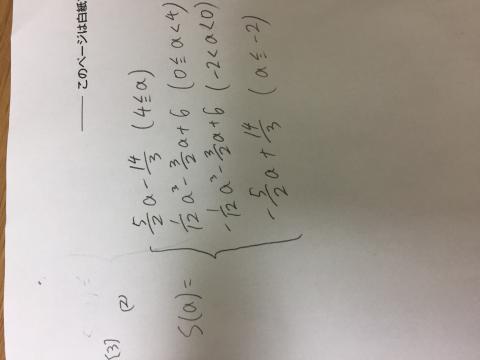 このページは白紙
(3)
(2)
S(a) = {
5/2 a - 14/3 (4 ≦ a)
1/12 a³ - 3/2 a + 6 (0 ≦ a < 4)
-1/12 a³ - 3/2 a + 6 (-2 < a < 0)
-5/2 a + 14/3 (a ≦ -2)